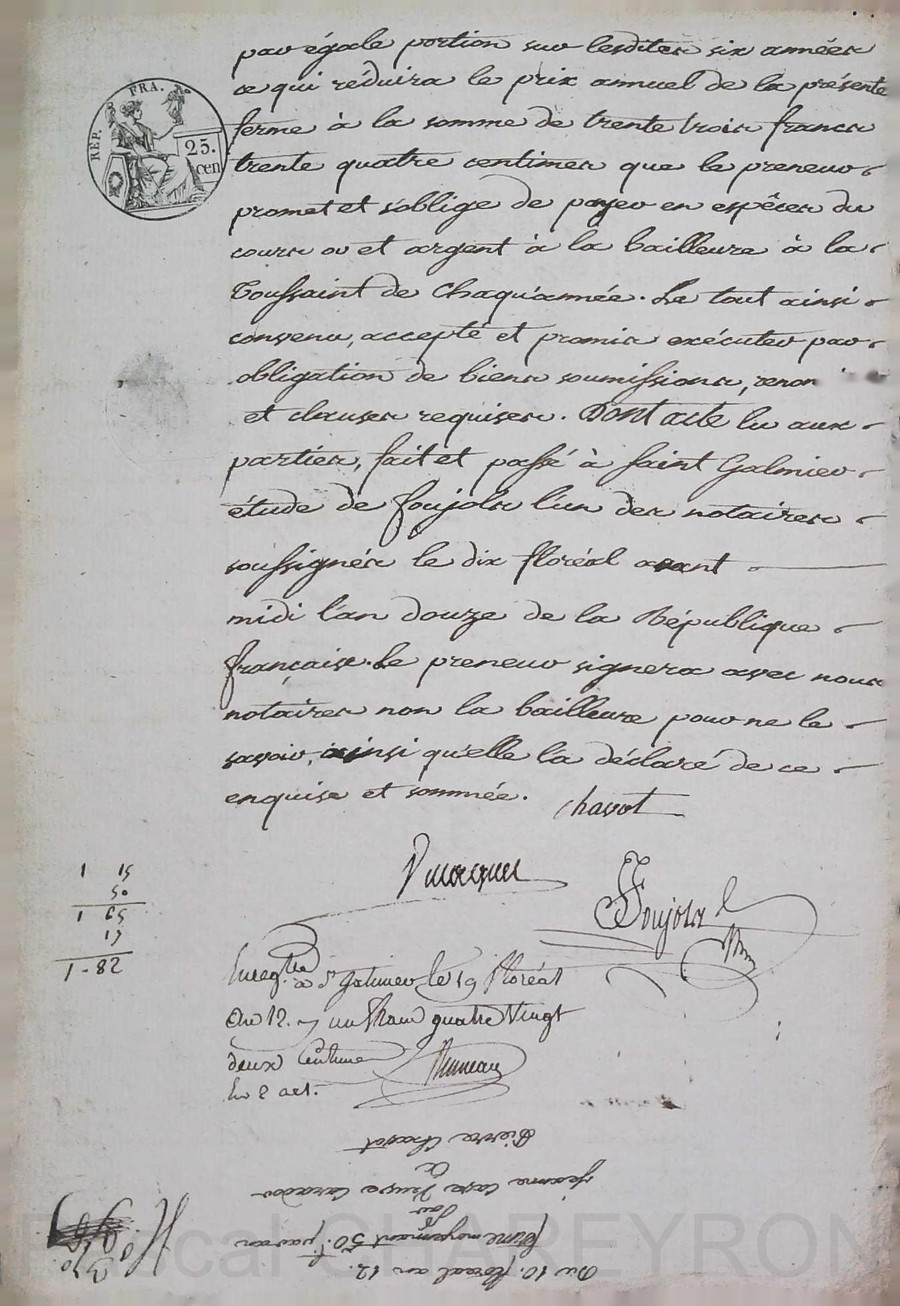 REP. FRA.
25.
cen
par égale portion sur lesdites six années
ce qui réduira le prix annuel de la présente
ferme à la somme de trente trois francs
trente quatre centimes que le preneur
promet et s'oblige de payer en espèces du
cours or et argent à la bailleure à la
Toussaint de chaqu'année. Le tout ainsi
convenu, accepté et promis exécuter par
obligation de biens soumissions, renon
et clauses requises. Dont acte lu aux
parties, fait et passé à Saint Galmier
étude de Foujols l'un des notaires
soussignés le dix floréal avant
midi l'an douze de la République
française. Le preneur signera avec nous
notaires non la bailleure pour ne le
savoir, ainsi qu'elle l'a déclaré de ce
enquise et sommée. Chavot
Foujols
1 15
50
1 65
17
1-82
Enreg.tré à St Galmier le 19 floréal
an 12. un franc quatre Vingt
deux Centimes
Du 10. floréal an 12.
ferme moyennant 50.f par an
Par
jeanne Veuve
à
Pierre Chavot
Pascal CHAREYRON